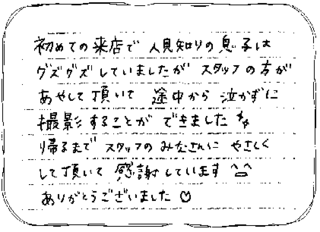 初めての来店で 人見知りの息子は
グズグズしていましたが スタッフの方が
あやして頂いて 途中から 泣かずに
撮影することが できました
帰るまで スタッフの みなさんに やさしく
して頂いて 感謝しています ^^
ありがとうございました ☺